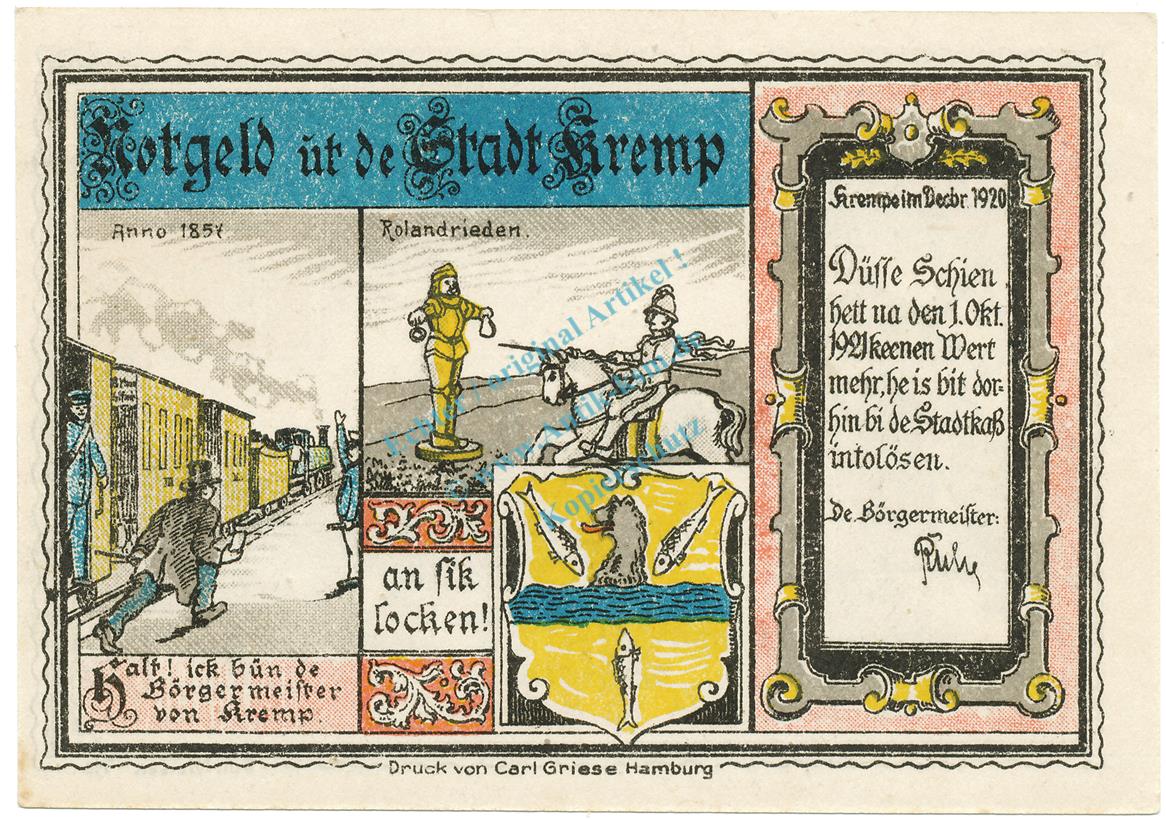 Notgeld út de Stadt Kremp
Anno 1857
Rolandrieden.
Halt! ick bün de
Börgermeister
von Kremp.
an sik
locken!
Krempe im Decbr. 1920
Düsse Schien
hett na den 1. Okt.
1921 keenen Wert
mehr, he is bit dor-
hin bi de Stadtkaß
intolösen.
De Börgermeister:
Druck von Carl Griese Hamburg
Echter / original Artikel !
Kopierschutz